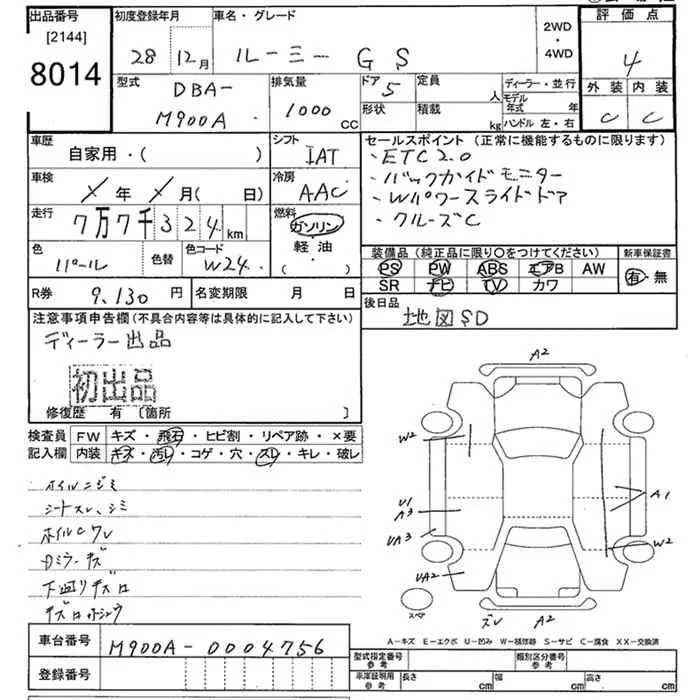 出品番号 初度登録年月 車名・グレード 評価点
[2144]
8014 28年 12月 ルーミー GS 2WD・4WD 4
型式 DBA-M900A 排気量 1000cc ドア 5 定員 人 ディーラー・並行 外装 内装
形状 積載 kg モデル年式 年 ハンドル 左・右 C C
車歴 自家用・( ) シフト IAT セールスポイント (正常に機能するものに限ります)
・ETC2.0
車検 X年 X月(日) 冷房 AAC ・バックガイドモニター
・Wパワースライドドア
走行 7万7千324km 燃料 ガソリン・軽油・( ) ・クルーズC
色 パール 色替 色コード W24 装備品 (純正品に限り○をつけてください) 新車保証書
PS PW ABS エアB AW 有・無
SR ナビ TV カワ
R券 9,130円 名変期限 月 日 後日品
地図SD
注意事項申告欄(不具合内容等は具体的に記入して下さい)
ディーラー出品
初出品
修復歴 有 〔箇所 〕
検査員記入欄 FW キズ・飛石・ヒビ割・リペア跡・×要
内装 キズ・汚レ・コゲ・穴・スレ・キレ・破レ
ホイルニジミ
シートスレ、シミ
ホイルCワレ
Dミラーキズ
下廻りキズロ
A2
W2
U1
A3
A1
UA3
W2
UA2
スペア
ズレ A2
A-キズ E-エクボ U-凹み W-補修跡 S-サビ C-腐食 XX-交換済
車台番号 M900A-0004756
登録番号
型式指定番号 参考 類別区分番号 参考
車庫証明用 参考 長さ cm 幅 cm 高さ cm